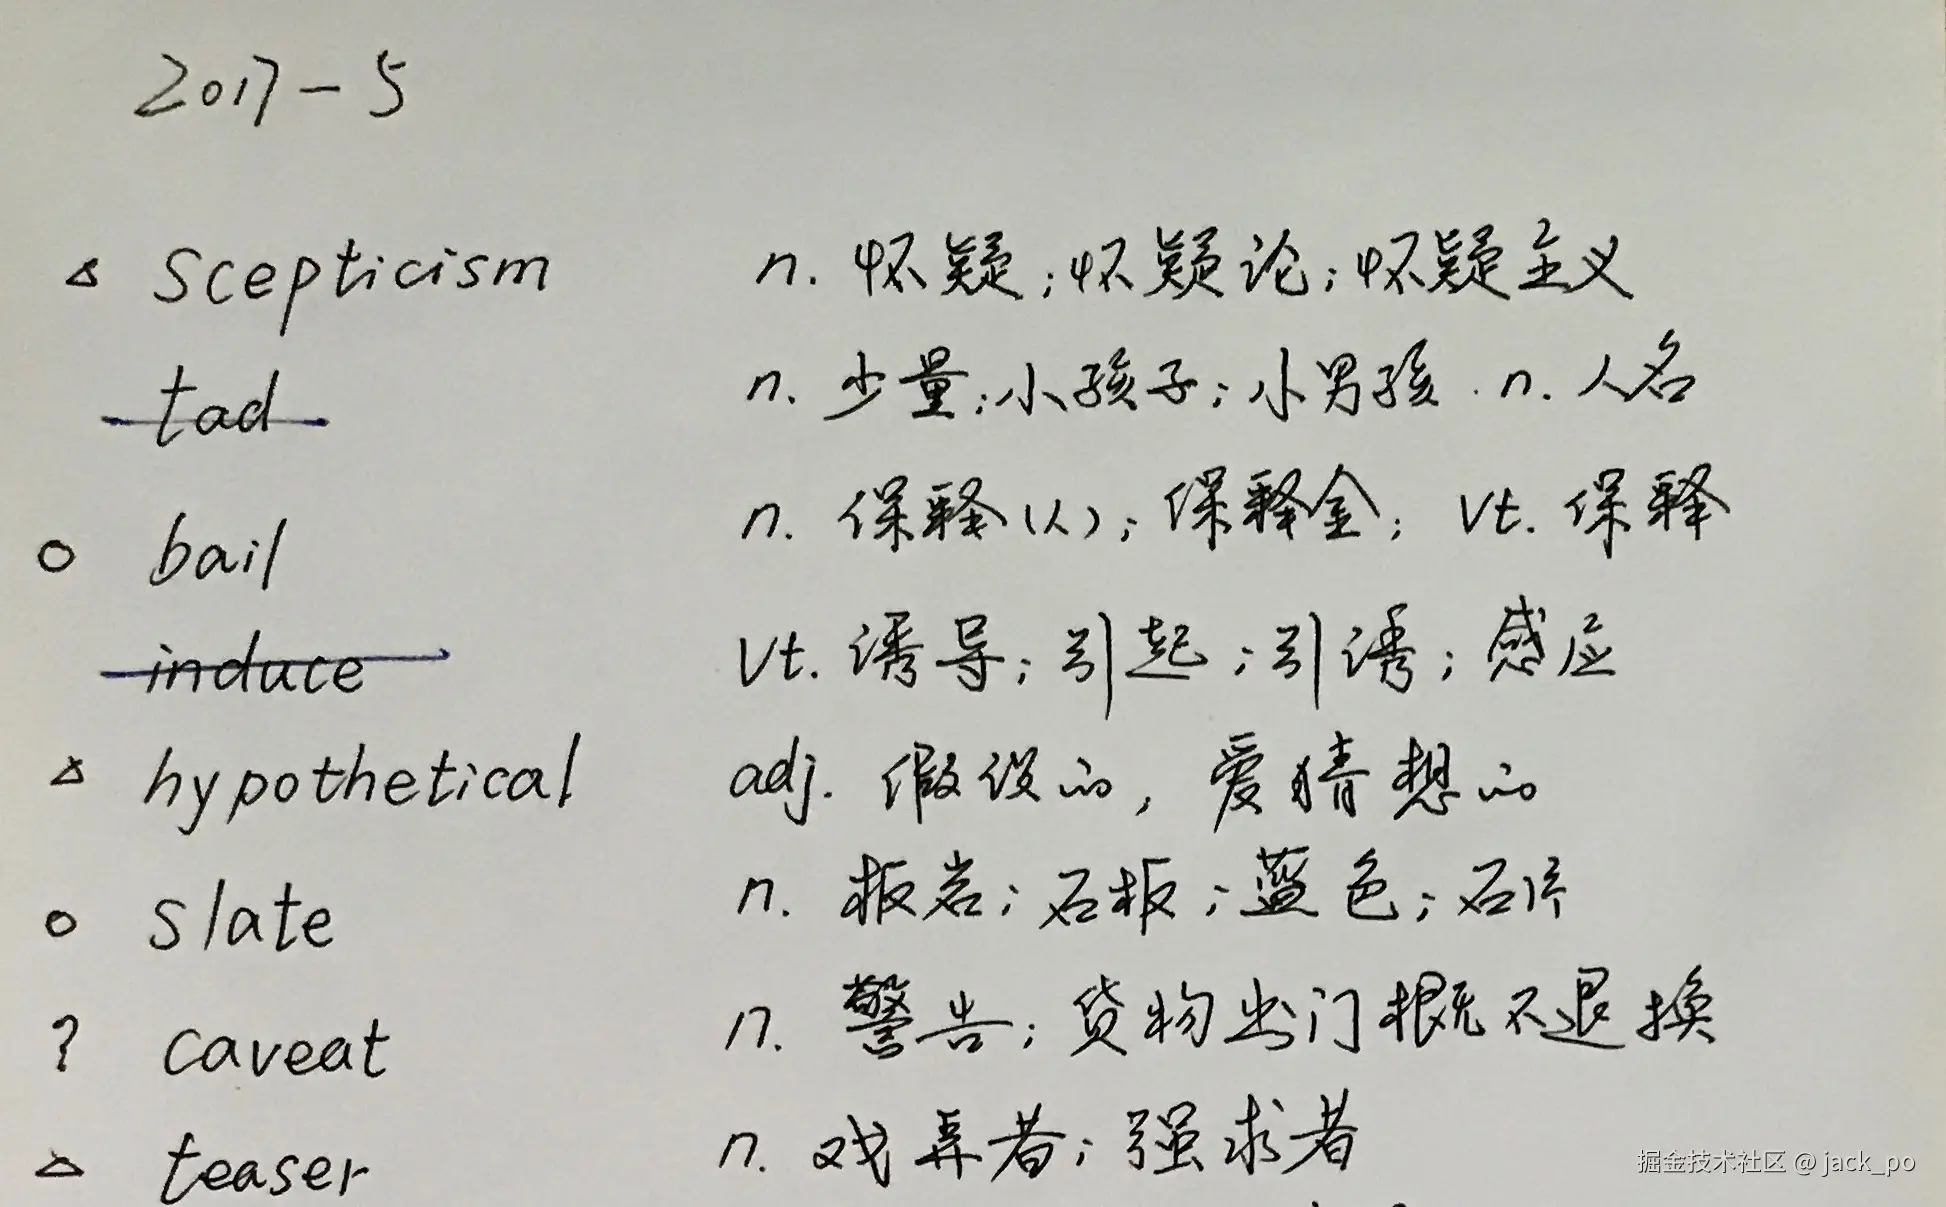 2017-5
△ scepticism n. 怀疑；怀疑论；怀疑主义
tad n. 少量；小孩子；小男孩．n. 人名
○ bail n. 保释（人）；保释金；vt. 保释
induce vt. 诱导；引起；引诱；感应
△ hypothetical adj. 假设的，爱猜想的
○ slate n. 板岩；石板；蓝色；石片
? caveat n. 警告；货物出门概不退换
△ teaser n. 戏弄者；强求者
掘金技术社区 @ jack_po